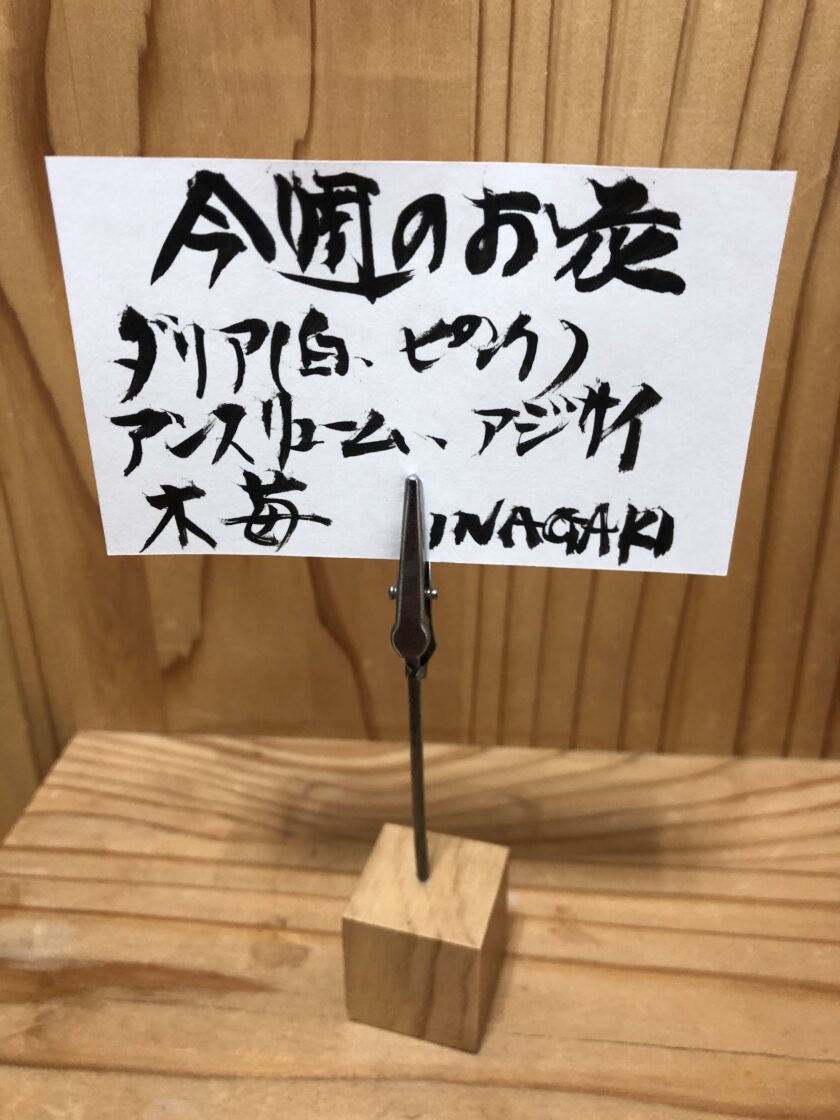 今週のお花
ダリア(白、ピンク)
アンスリューム、アジサイ
木苺 INAGAKI